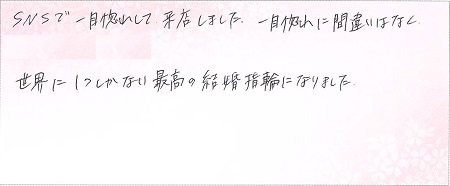 SNSで一目惚れして来店しました。一目惚れに間違いはなく
世界に1つしかない最高の結婚指輪になりました。